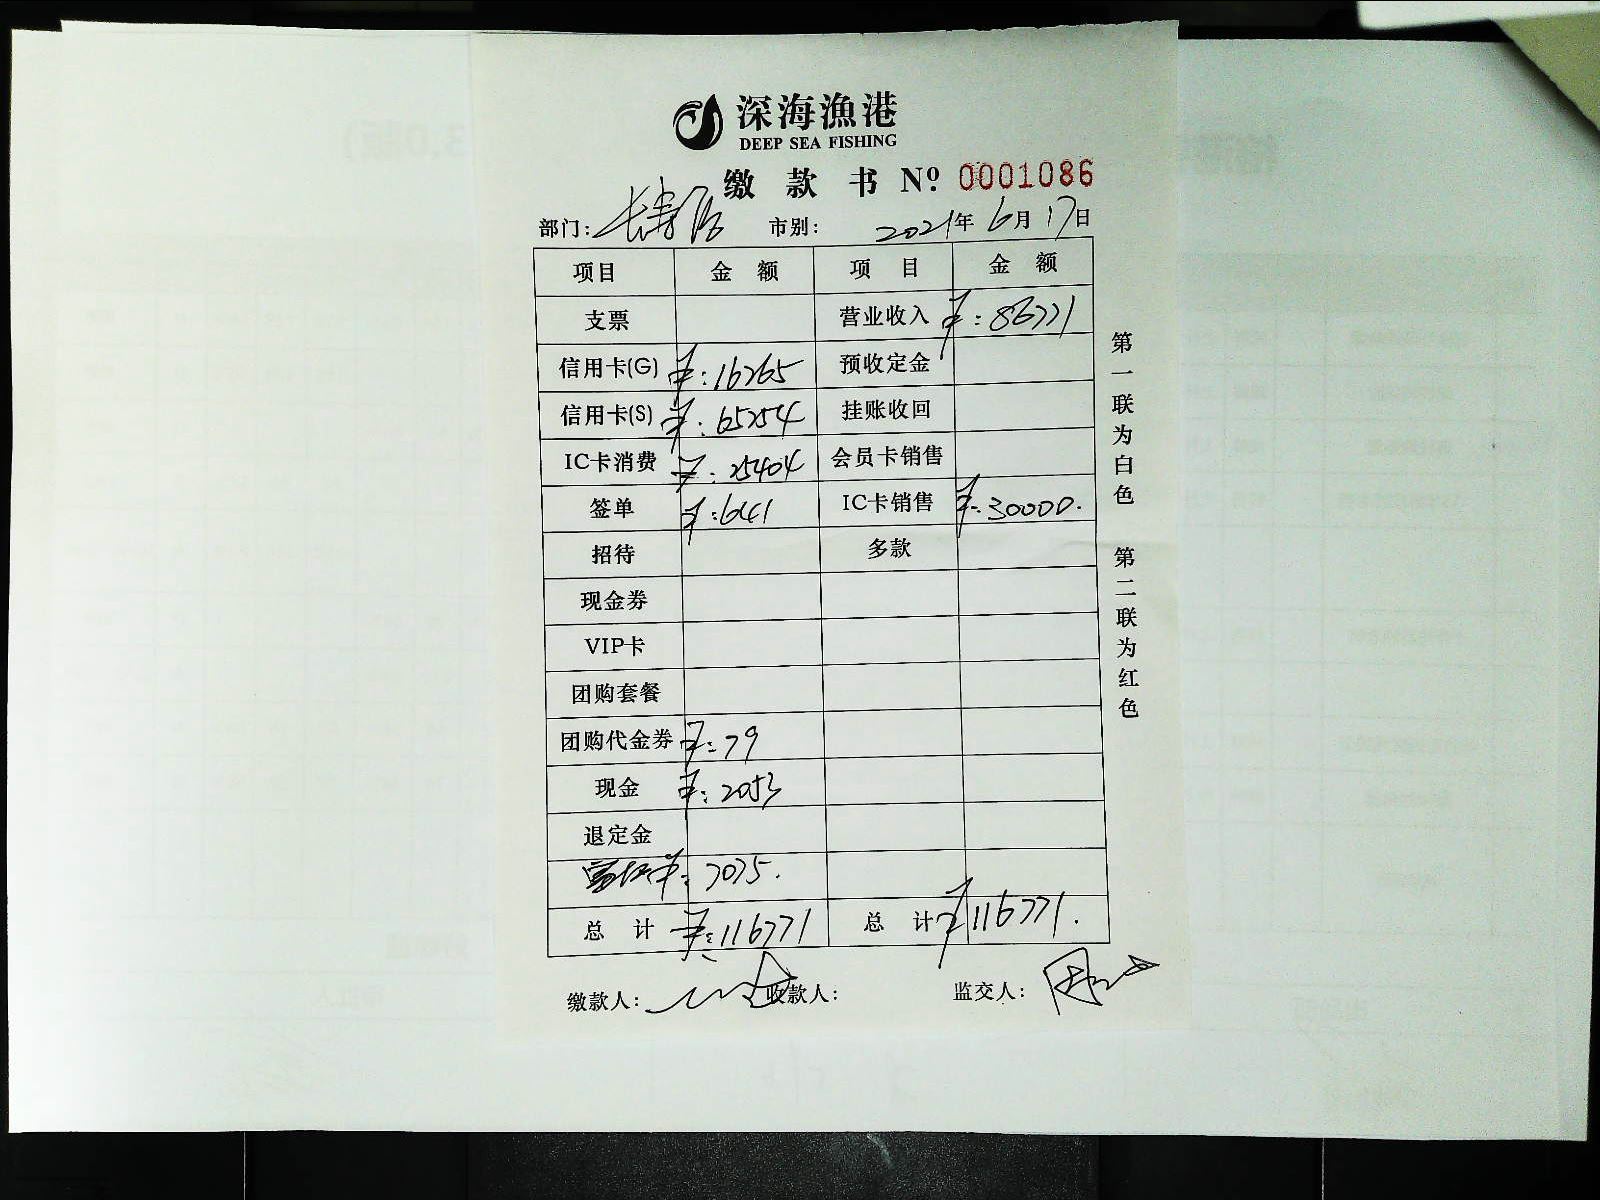 深海漁港
DEEP SEA FISHING
缴款书 Nº 0001086
部门: 长寿 市别: 2021年6月17日
项目 金额 项目 金额
支票 营业收入 ¥:86771
信用卡(G) ¥:16265 预收定金
信用卡(S) ¥:65254 挂账收回
IC卡消费 ¥:25404 会员卡销售
签单 ¥:641 IC卡销售 ¥:30000.
招待 多款
现金券
VIP卡
团购套餐
团购代金券 ¥:79
现金 ¥:2053
退定金
7075.
总计 ¥:116771 总计 ¥116771.
缴款人: 收款人: 监交人:
第一联为白色 第二联为红色